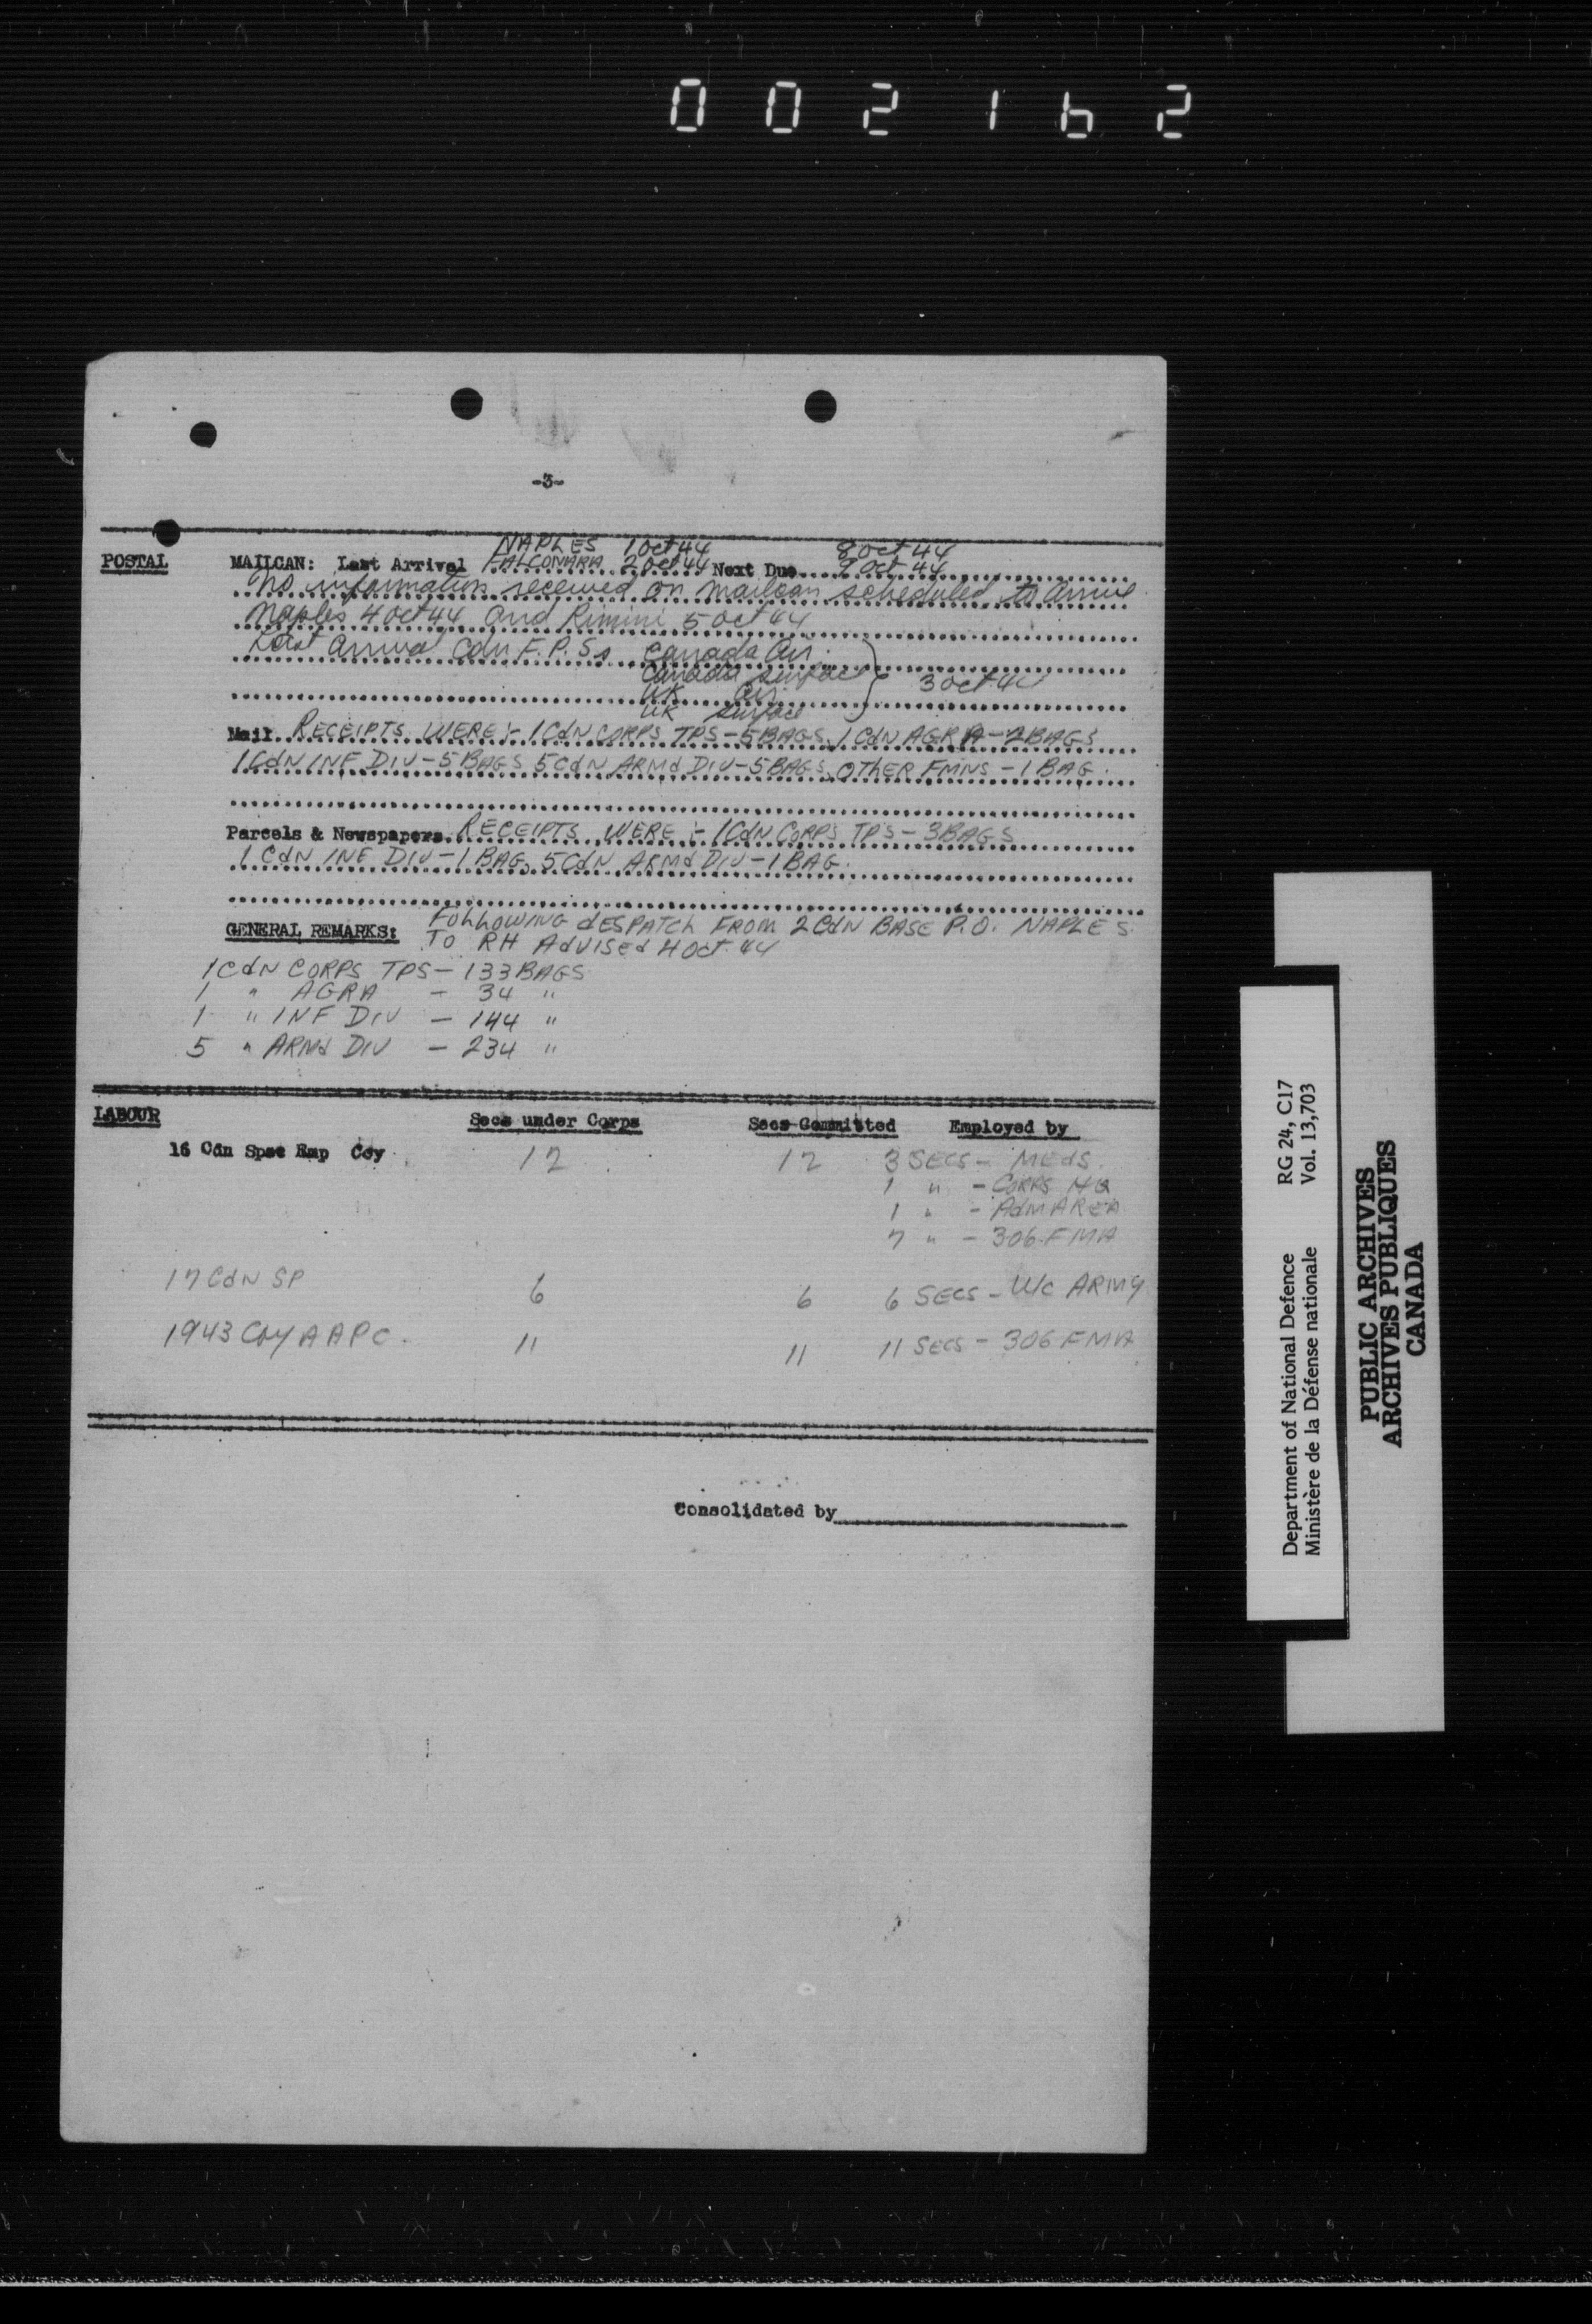 002162
-3-
POSTAL MAILCAN: Last Arrival NAPLES 1 Oct 44 Next Due 8 Oct 44
FALCONARA 2 Oct 44 9 Oct 44
No information received on mailcan scheduled to arrive
Naples 4 Oct 44 and Rimini 5 Oct 44
Last Arrival Cdn F.P.S. Canada Air
Canada surface 3 Oct 44
UK Air
UK surface
Mail RECEIPTS WERE:- 1 CdN CORPS TPS - 5 BAGS, 1 CdN AGRA - 2 BAGS
1 CdN INF DIV - 5 BAGS 5 CdN ARMd DIV - 5 BAGS, OTHER FMNS - 1 BAG.
Parcels & Newspapers. RECEIPTS WERE:- 1 CdN CORPS TPS - 3 BAGS
1 CdN INF DIV - 1 BAG, 5 CdN ARMd DIV - 1 BAG.
GENERAL REMARKS: FOLLOWING dESPATCh FROM 2 CdN BASE P.O. NAPLES
TO RH AdVISEd 4 Oct 44
1 CdN CORPS TPS - 133 BAGS
1 " AGRA - 34 "
1 " INF DIV - 144 "
5 " ARMd DIV - 234 "
LABOUR Secs under Corps Secs Committed Employed by
16 Cdn Spec Emp Coy 12 12 3 SECS - MEdS.
1 " - CORPS HQ
1 " - AdM AREA
7 " - 306 FMA
17 CdN SP 6 6 6 SECS - U/c ARMY
1943 Coy AAPC. 11 11 11 SECS - 306 FMA
Consolidated by
Department of National Defence RG 24, C17
Ministère de la Défense nationale Vol. 13,703
PUBLIC ARCHIVES
ARCHIVES PUBLIQUES
CANADA